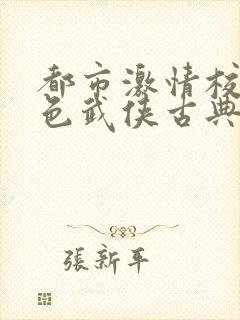 都市激情校
色武侠古典
張新平